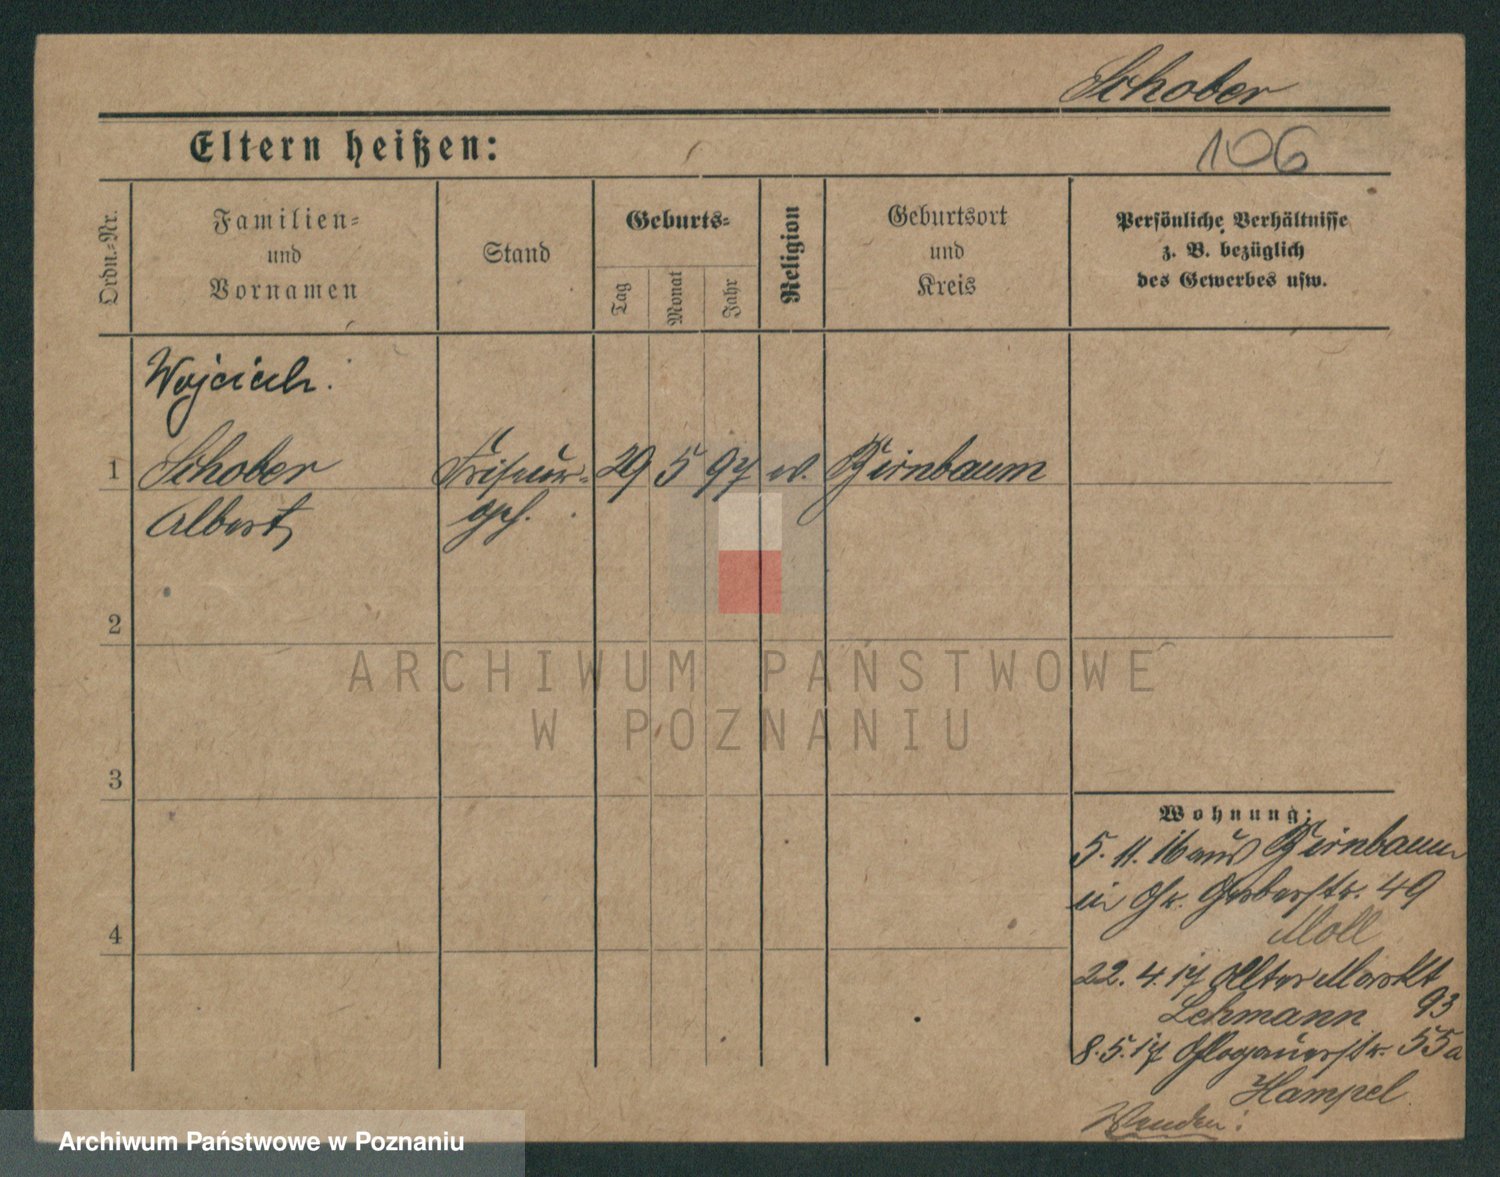 Schober
Eltern heißen:
106
Ordn.-Nr.
Familien-
und
Vornamen
Stand
Geburts-
Tag
Monat
Jahr
Religion
Geburtsort
und
Kreis
Persönliche Verhältnisse
z. B. bezüglich
des Gewerbes usw.
Wojciech.
1 Schober Friseur- 29 5 97 ev. Birnbaum
Albert geh.
2
3
4
ARCHIWUM PAŃSTWOWE
W POZNANIU
Wohnung:
5. 11. 16 aus Birnbaum
in Gr. Gerberstr. 49
Moll
22. 4. 17 Alter Markt
93
Lehmann
8. 5. 17 Glogauerstr. 55a
Hampel
Wenden!
Archiwum Państwowe w Poznaniu